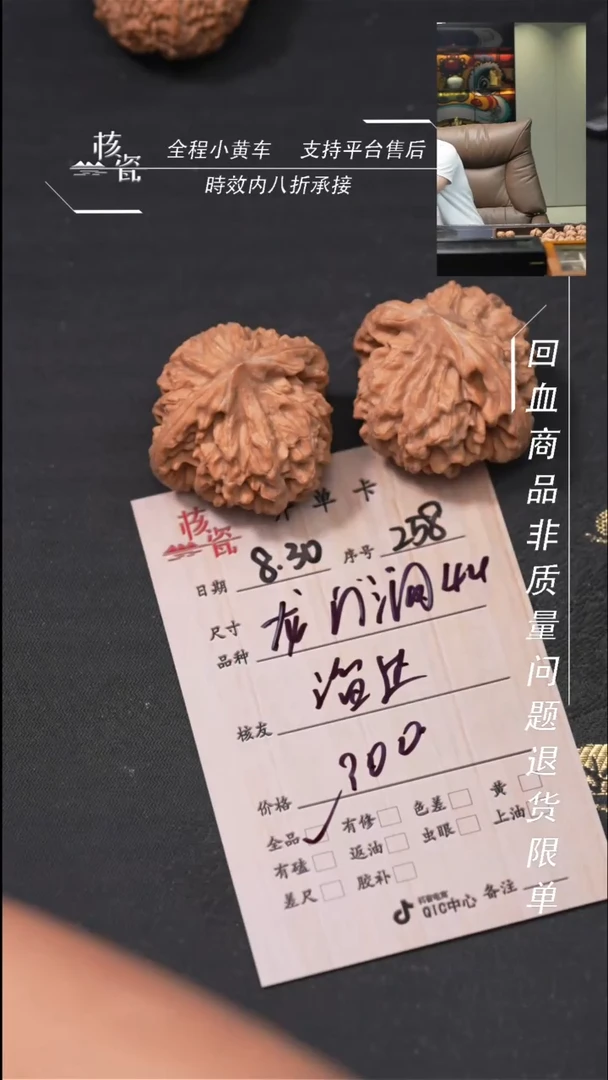 核瓷
全程小黄车 支持平台售后
時效内八折承接
回血商品非质量问题退货限单
核瓷
单卡
日期 8.30 序号 258
尺寸
品种 龙门涧44
核友
价格 300
全品 ✓ 有修 色差 黄
有磕 返油 虫眼 上油
差尺 胶补
抖音电商
QIC中心 备注